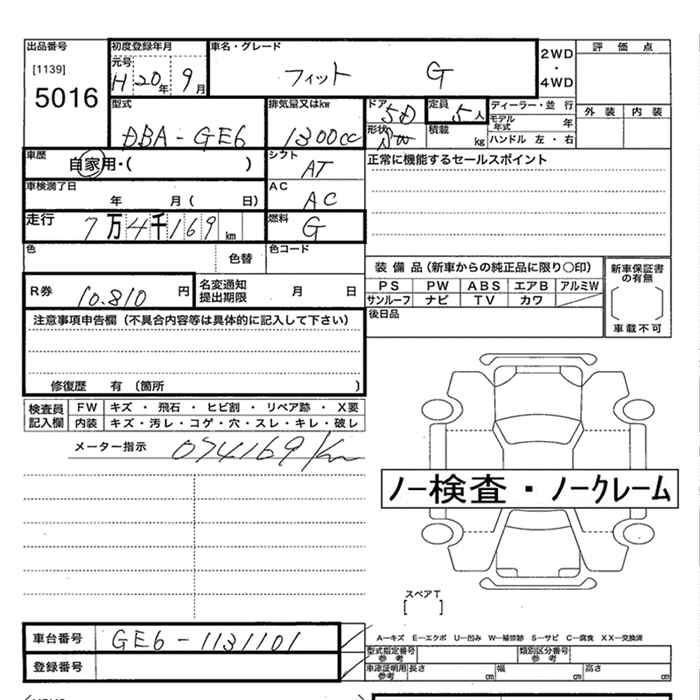 出品番号 初度登録年月 車名・グレード 2WD・4WD 評価点
[1139] 元号
5016 H 20年 9月 フィット G
外装 内装
型式 排気量又はkw ドア 5D 定員 5人 ディーラー・並行
DBA-GE6 1300cc 形状 積載 kg モデル年式 年
ハンドル 左・右
車歴 自家用・( ) シフト AT 正常に機能するセールスポイント
車検満了日 年 月( 日) AC AC
走行 7万4千169km 燃料 G
色 色替 色コード
装備品(新車からの純正品に限り○印) 新車保証書の有無
R券 10.810円 名変通知提出期限 月 日 PS PW ABS エアB アルミW
サンルーフ ナビ TV カワ [ ]
注意事項申告欄(不具合内容等は具体的に記入して下さい) 後日品 車載不可
修復歴 有 (箇所 )
検査員記入欄 FW キズ・飛石・ヒビ割・リペア跡・X要
内装 キズ・汚レ・コゲ・穴・スレ・キレ・破レ
メーター指示 074169km
ノー検査・ノークレーム
スペアT
[ ]
車台番号 GE6-1131101 A―キズ E―エクボ U―凹み W―補修跡 S―サビ C―腐食 XX―交換済
型式指定番号 参考 類別区分番号 参考
登録番号 車庫証明用 参考 長さ cm 幅 cm 高さ cm